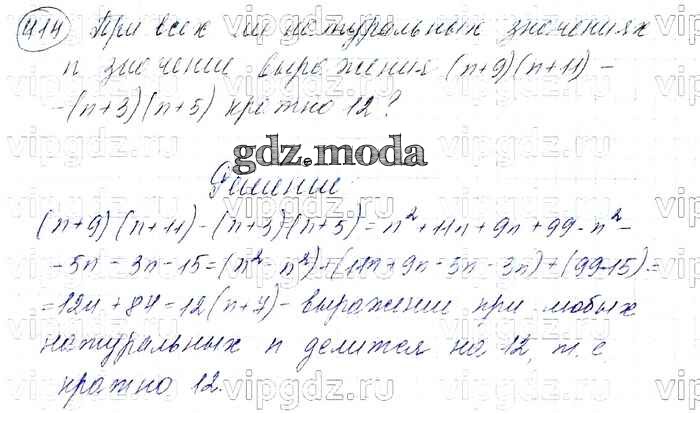 414 При всех ли натуральных значениях
n значение выражения (n+9)(n+11)-
-(n+3)(n+5) кратно 12?
gdz.moda
Решение.
(n+9)(n+11)-(n+3)(n+5)=n²+11n+9n+99-n²-
-5n-3n-15=(n²-n²)+(11n+9n-5n-3n)+(99-15)=
=12n+84=12(n+7)-выражение при любых
натуральных n делится на 12, т.е
кратно 12.
vipgdz.ru